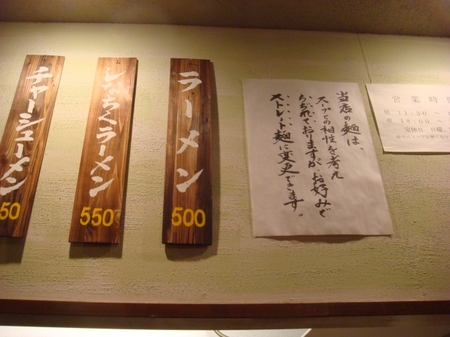 営業時
11:30 〜
18:00 〜
定休日 日曜
当店の麺は、
スープとの相性を考え
ちぢれておりますが、お好みで
ストレート麺に変更できます。
ラーメン
500
しなちくラーメン
550
チャーシューメン
50